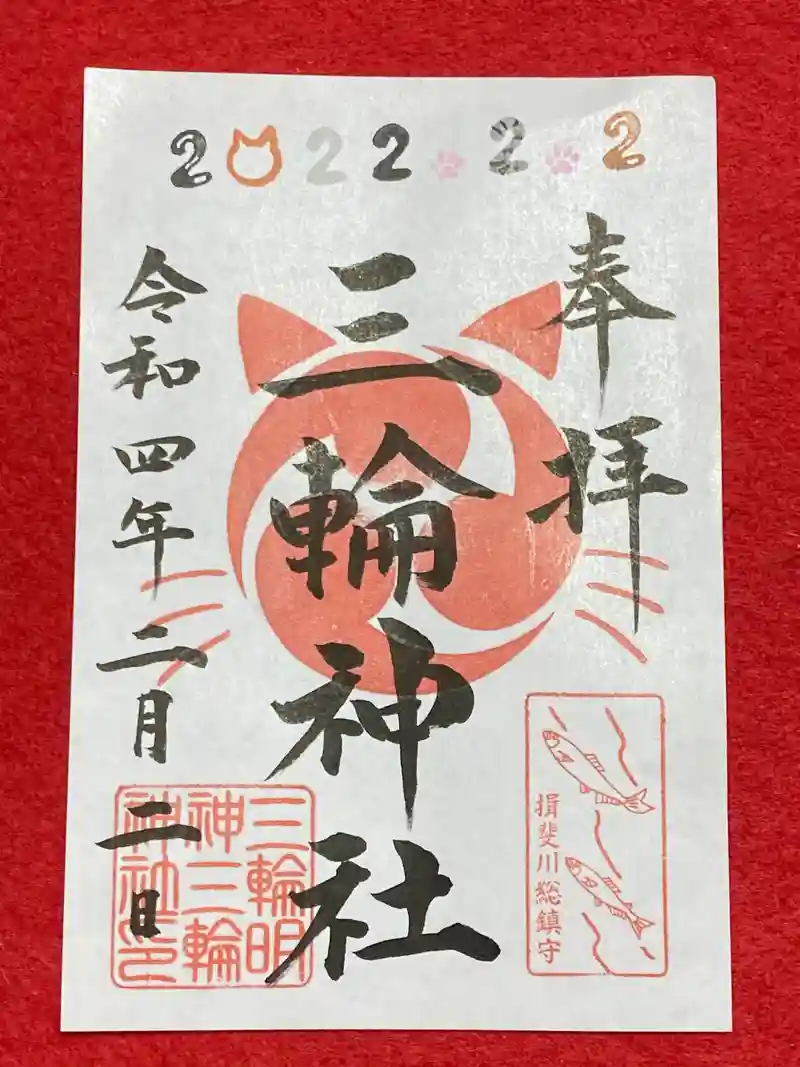 2022 2 2
奉拝
三輪神社
令和四年二月二日
揖斐川総鎮守
三輪明
神三輪
神社印